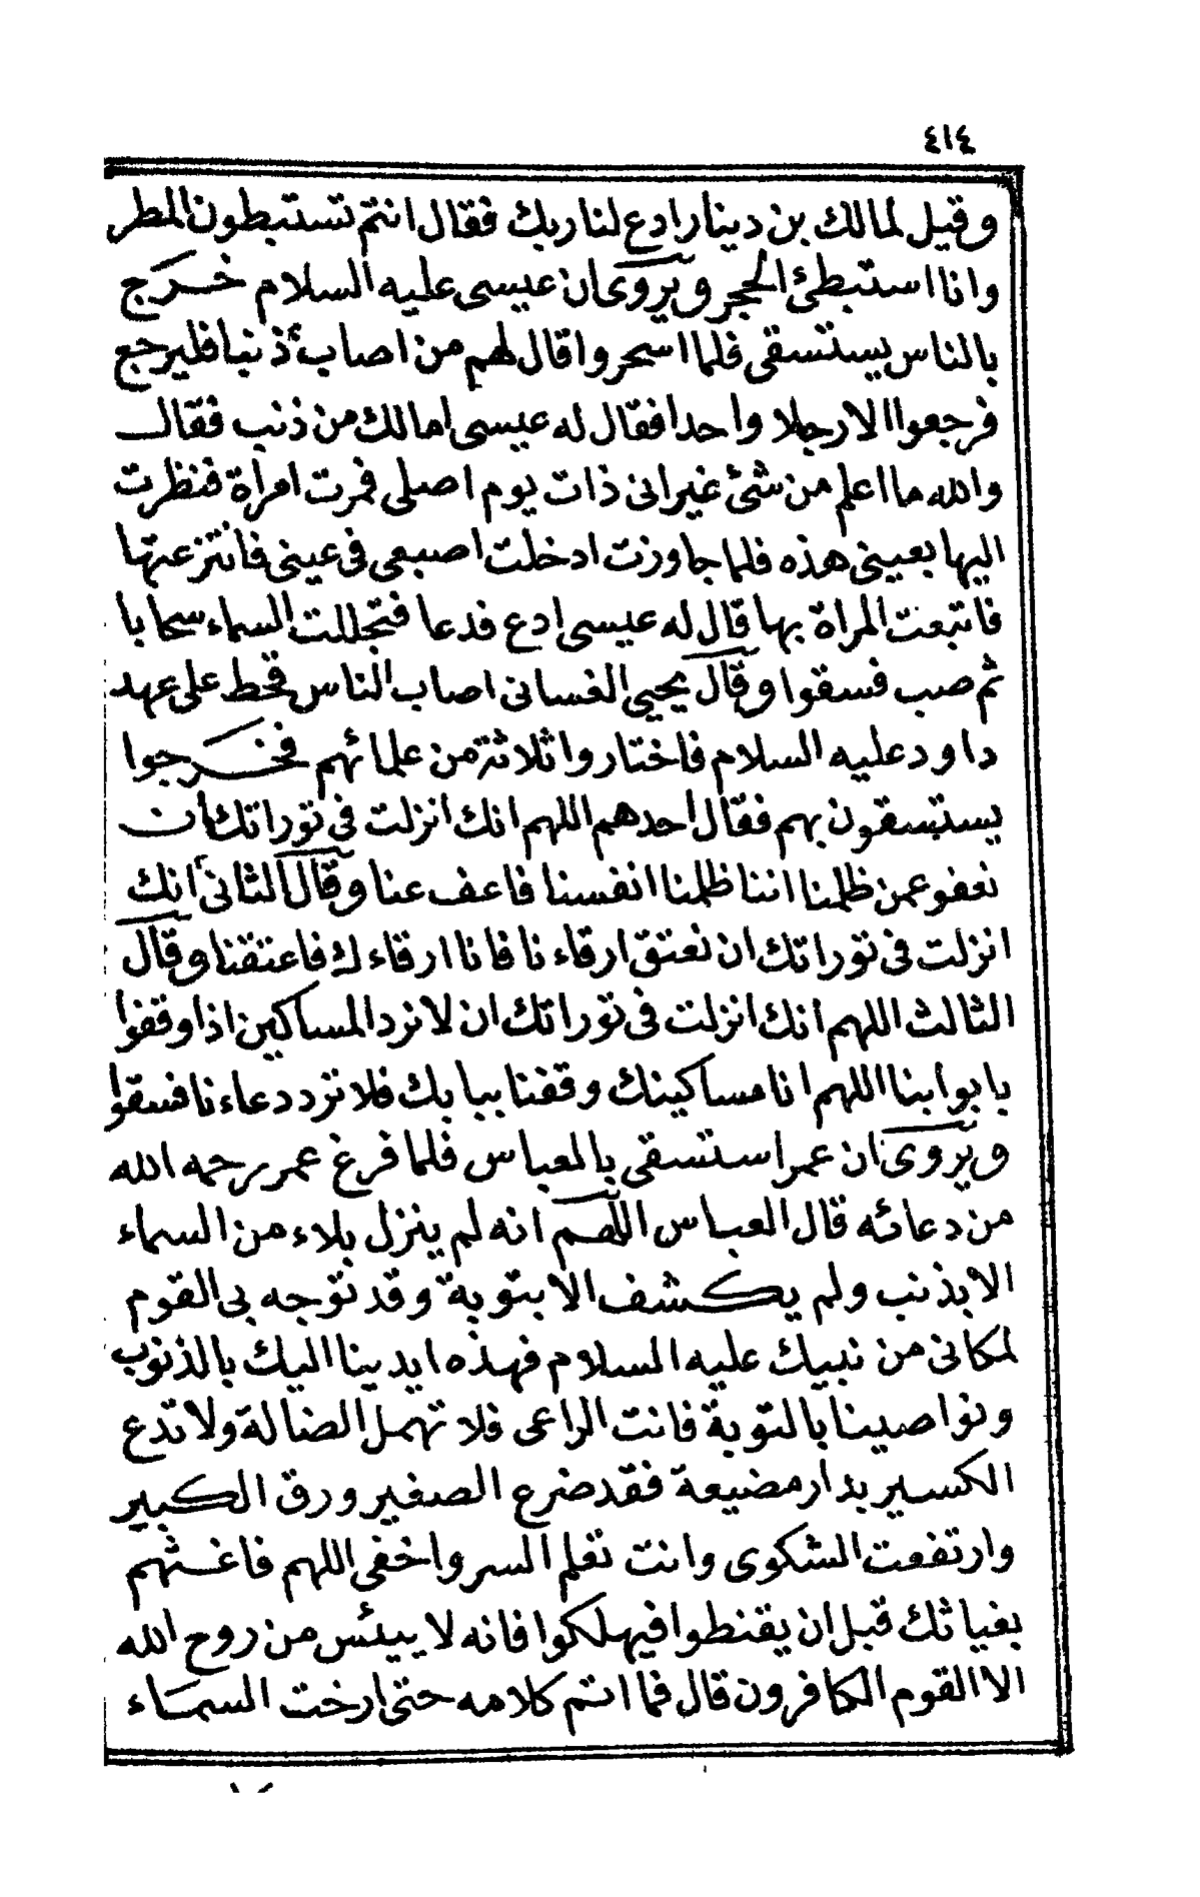 ٤١٤
وقيل لمالك بن دينار ادع لنا ربك فقال انتم تستبطون المطر
وانا استبطئ الحجر ويروى ان عيسى عليه السلام خرج
بالناس يستسقى فلما اسحروا قال لهم من اصاب ذنبا فليرجع
فرجعوا الا رجلا واحدا فقال له عيسى امالك من ذنب فقال
والله ما اعلم من شئ غير انى ذات يوم اصلى فمرت امرأة فنظرت
اليها بعينى هذه فلما جاوزت ادخلت اصبعى فى عينى فانتزعتها
فاتبعت المراة بها قال له عيسى ادع فدعا فتجللت السماء سحابا
ثم صب فسقوا وقال يحيى الغسانى اصاب الناس قحط على عهد
داود عليه السلام فاختاروا ثلاثة من علمائهم فخرجوا
يستسقون بهم فقال احدهم اللهم انك انزلت فى توراتك أن
نعفو عمن ظلمنا اننا ظلمنا انفسنا فاعف عنا وقال الثانى انك
انزلت فى توراتك ان نعتق ارقاءنا فانا ارقاءك فاعتقنا وقال
الثالث اللهم انك انزلت فى توراتك ان لا نرد المساكين اذا وقفوا
بابوابنا اللهم انا مساكينك وقفنا ببابك فلا تردد دعاءنا فسقوا
ويروى ان عمر استسقى بالعباس فلما فرغ عمر رحمه الله
من دعائه قال العباس اللهم انه لم ينزل بلاء من السماء
الا بذنب ولم يكشف الا بتوبة وقد توجه بى القوم
لمكانى من نبيك عليه السلام فهذه ايدينا اليك بالذنوب
ونواصينا بالتوبة فانت الراعى فلا تهمل الضالة ولا تدع
الكسير بدار مضيعة فقد ضرع الصغير ورق الكبير
وارتفعت الشكوى وانت تعلم السر واخفى اللهم فاغثهم
بغياثك قبل ان يقنطوا فيهلكوا فانه لا ييئس من روح الله
الا القوم الكافرون قال فما اتم كلامه حتى ارخت السماء